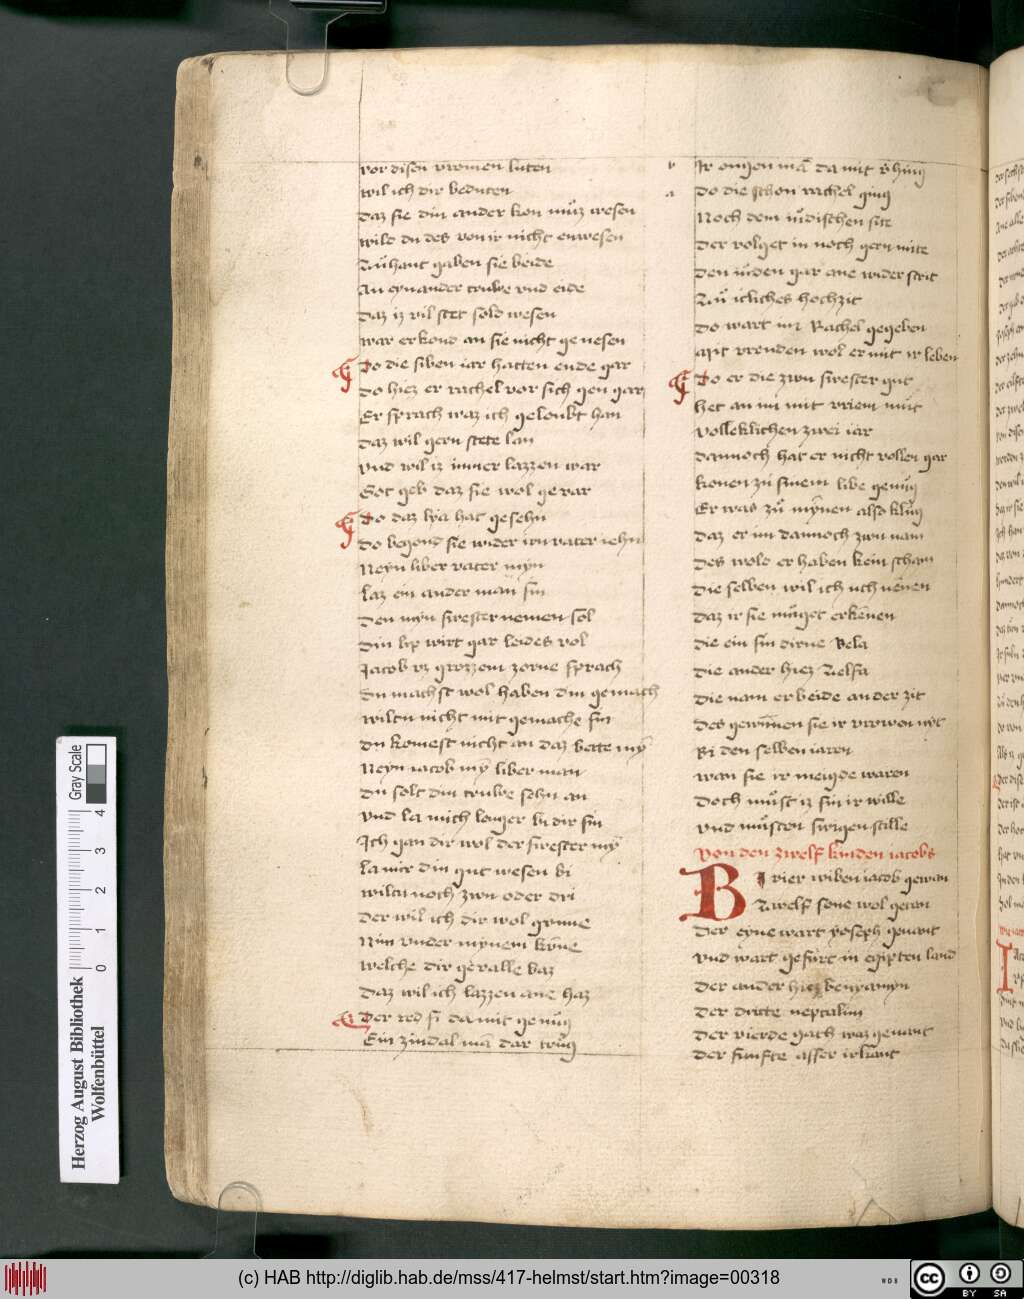 vor disen vromen luten
wil ich dir beduten
daz sie din ander kon muz wesen
wilt du des von ir nicht enwesen
Zuhant gaben sie beide
An eynander truwe vnd eide
daz iz vil stet sold wesen
war er kond an sie nicht genesen
Do die siben iar hatten ende gar
do hiez er rachel vor sich gen gar
Er sprach waz ich geloubt han
daz wil gern stete lan
vnd wil iz immer lazzen war
Got geb daz sie wol gevar
Do daz lya hat gesehn
do begond sie wider irn vater iehn
Neyn liber vater myn
laz ein ander man sin
den myn swester nemen sol
din lip wirt gar leides vol
Jacob vz grozzem zorne sprach
du machst wol haben din gemach
wiltu nicht mit gemache sin
du komest nicht an daz bette my̅
Neyn iacob my̅ liber man
du solt din truwe sehn an
vnd la mich lenger bi dir sin
Ich gan dir wol der swester my̅
la mir din gut wesen bi
wiltu noch zwu oder dri
der wil ich dir wol gunne
Nim vnder mynem kunne
welche dir gevalle baz
daz wil ich lazzen ane haz
Der red si da mit genug
Ein zindal ma̅ dar trug
Ir ougen ma̅ da mit v̉hing
do die schon rachel ging
Noch dem iudischen site
der volget in noch gern mite
den iuden gar ane wider strit
Zu icliches hochzit
do wart im Rachel gegeben
mit vrouden wol er mit ir leben
Do er die zwu swester gut
het an im mit vriem mut
volleklichen zwei iar
dannoch hat er nicht vollen gar
konen zu sinem libe genug
Er was zu mynen also klug
daz er im dannoch zwu nam
des wold er haben kein scham
die selben wil ich uch nenen
daz ir sie muget erkenen
die ein sin dirne Bela
die ander hiez Zelfa
die nam er beide an der zit
des gewunnen sie ir vrowen nyt
Bi den selben iaren
wan sie ir meigde waren
doch must iz sin ir wille
vnd musten swigen stille
von den zwelf kinden iacobs
Bi vier wiben iacob gewan
Zwelf sone wol getan
der eyne wart yoseph genant
vnd wart gefurt in egipten land
der ander hiez benyamyn
der dritte neptalim
der vierde gath waz genant
der funfte asser irkant
Herzog August Bibliothek
Wolfenbüttel
Gray Scale
0 1 2 3 4
(c) HAB http://diglib.hab.de/mss/417-helmst/start.htm?image=00318
WDB
cc BY SA